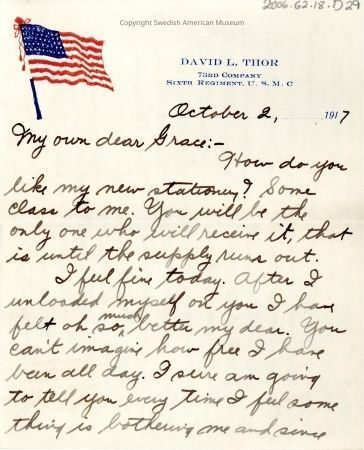 Copyright Swedish American Museum
2006.62.18.D29
DAVID L. THOR
73RD COMPANY
SIXTH REGIMENT, U. S. M. C
October 2, 1917
My own dear Grace:-
How do you
like my new stationery? Some
class to me. You will be the
only one who will receive it, that
is until the supply runs out.
I feel fine today. After I
unloaded myself on you I have
felt oh so much better my dear. You
can't imagine how free I have
been all day. I sure am going
to tell you every time I feel some
thing is bothering me and since